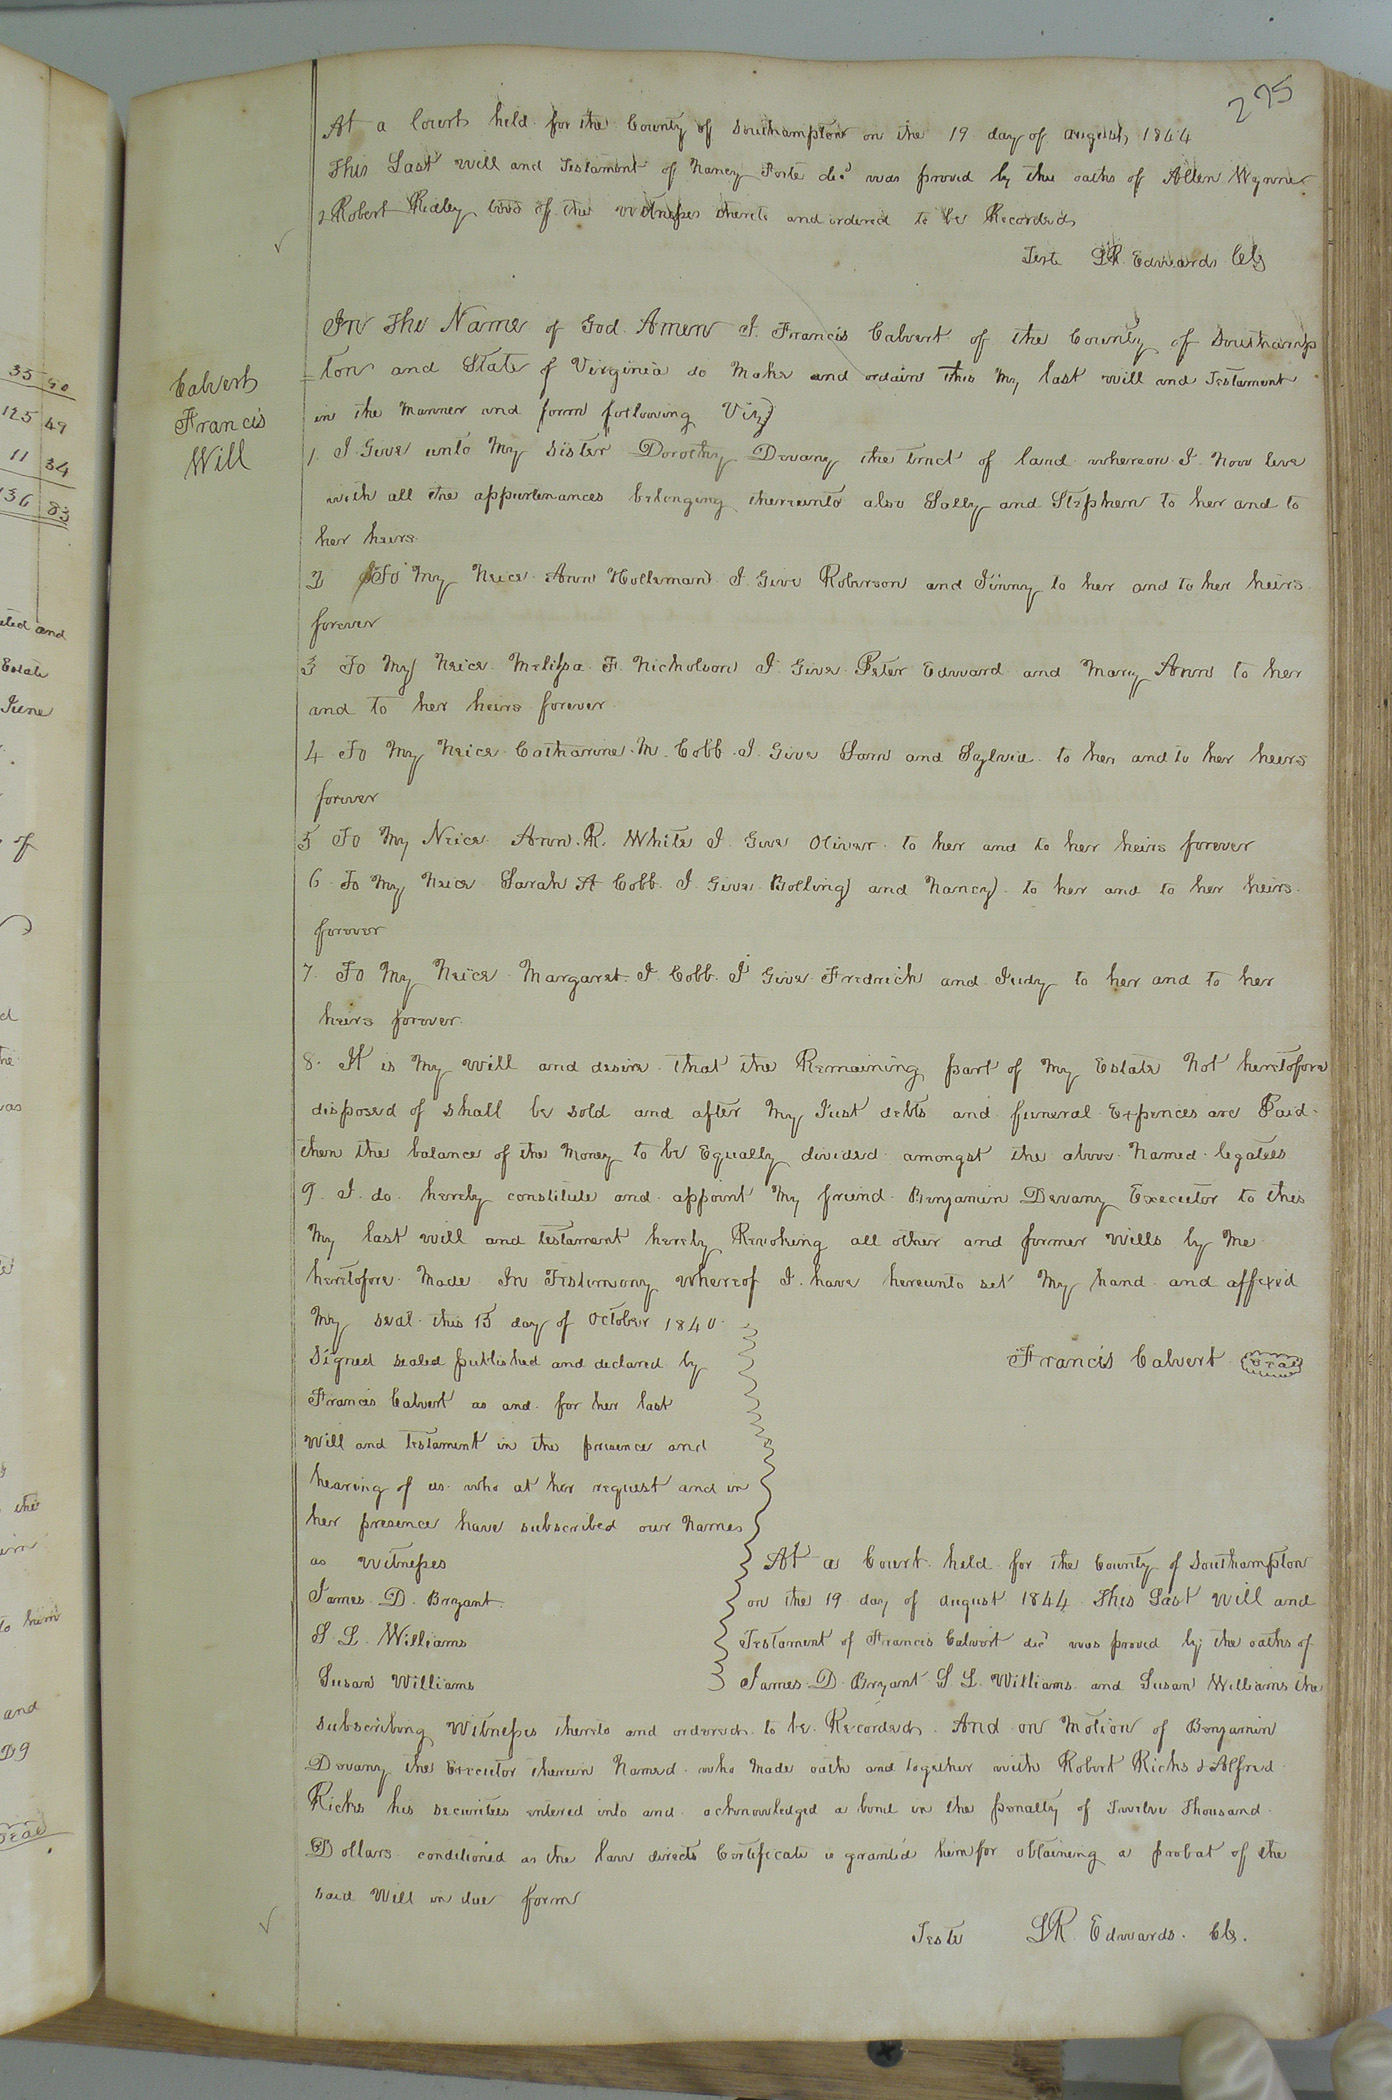 275
At a Court held for the County of Southampton on the 19 day of august, 1844
This Last will and Testament of Nancy decd was proved by the oaths of Allen Wynne
& Robert Ridley two of the Witnesses thereto and ordered to be Recorded
Teste LR. Edwards Clk
Calvert
Francis
Will
In The Name of God Amen I. Francis Calvert of the County of Southamp
ton and State of Virginia do Make and ordain this My last will and Testament
in the Manner and form following Viz)
1. I Give unto My Sister Dorothy Devany the tract of land whereon I Now live
with all the appurtenances belonging thereunto also Sally and Stephen to her and to
her heirs
2 To My Neice Ann Holleman I Give Roberson and Jinny to her and to her heirs
forever
3 To My Neice Melissa F. Nicholson I Give Peter Edward and Mary Ann to her
and to her heirs forever
4 To My Neice Catharine M. Cobb I Give Sam and Sylvia to her and to her heirs
forever
5 To My Neice Ann. R. White I Give Oliver to her and to her heirs forever
6 To My Neice Sarah A Cobb I Give Bolling and Nancy to her and to her heirs
forever
7. To My Neice Margaret J. Cobb I Give Fredrick and Judy to her and to her
heirs forever
8. It is My will and desire that the Remaining part of My Estate Not heretofore
disposed of shall be sold and after My Just debts and funeral Expences are Paid
then the balance of the Money to be Equally divided amongst the above Named legatees
9. I do hereby constitute and appoint My friend Benjamin Devany Executor to this
My last will and testament hereby Revoking all other and former wills by Me
heretofore Made In Testimony whereof I have hereunto set My hand and affixed
My seal this 15 day of October 1840
Signed sealed published and declared by
Francis Calvert Seal
Francis Calvert as and for her last
will and testament in the presence and
hearing of us who at her request and in
her presence have subscribed our Names
as Witnesses
James D. Bryant
S L. Williams
Susan Williams
At a Court held for the County of Southampton
on the 19 day of august 1844 This Last will and
Testament of Francis Calvert decd was proved by the oaths of
James D. Bryant S L. Williams and Susan Williams the
subscribing Witnesses thereto and ordered to be Recorded. And on Motion of Benjamin
Devany the Executor therein Named who Made oath and together with Robert Ricks & Alfred
Ricks his securities entered into and acknowledged a bond in the penalty of Twelve Thousand
Dollars conditioned as the law directs Certificate is granted him for obtaining a probat of the
said Will in due form
Teste LR. Edwards. Clk.
35 90
125 49
11 34
136 83
and
Estate
June
of
the
to him
and